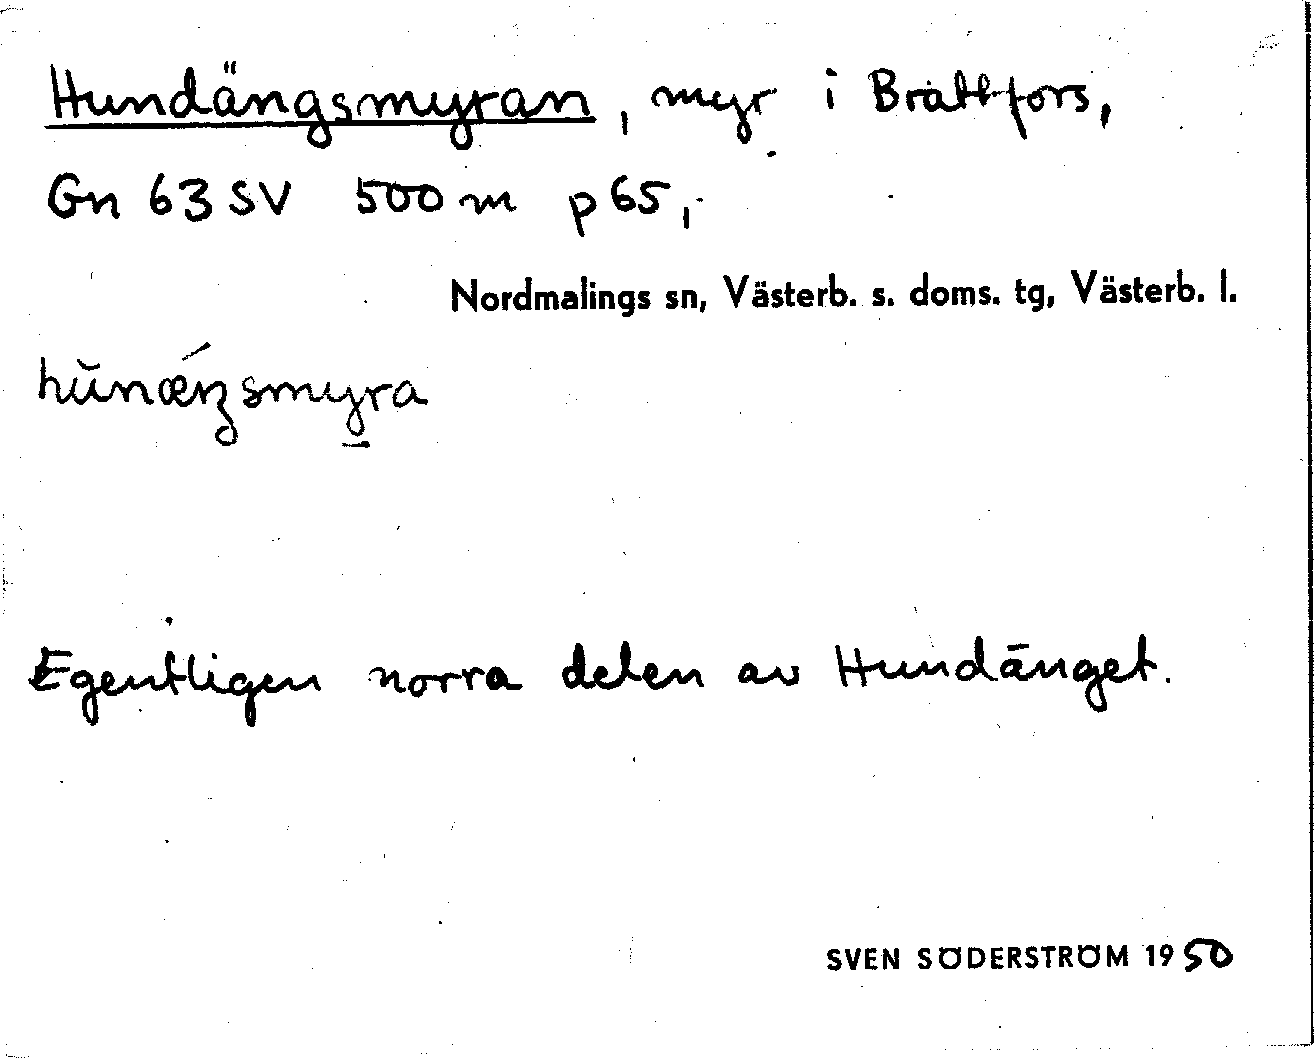 Hundängsmyran, myr i Brattfors,
Gn 63 SV 500 m p 65,
Nordmalings sn, Västerb. s. doms. tg, Västerb. l.
Egentligen norra delen av Hundänget.
SVEN SÖDERSTRÖM 1950